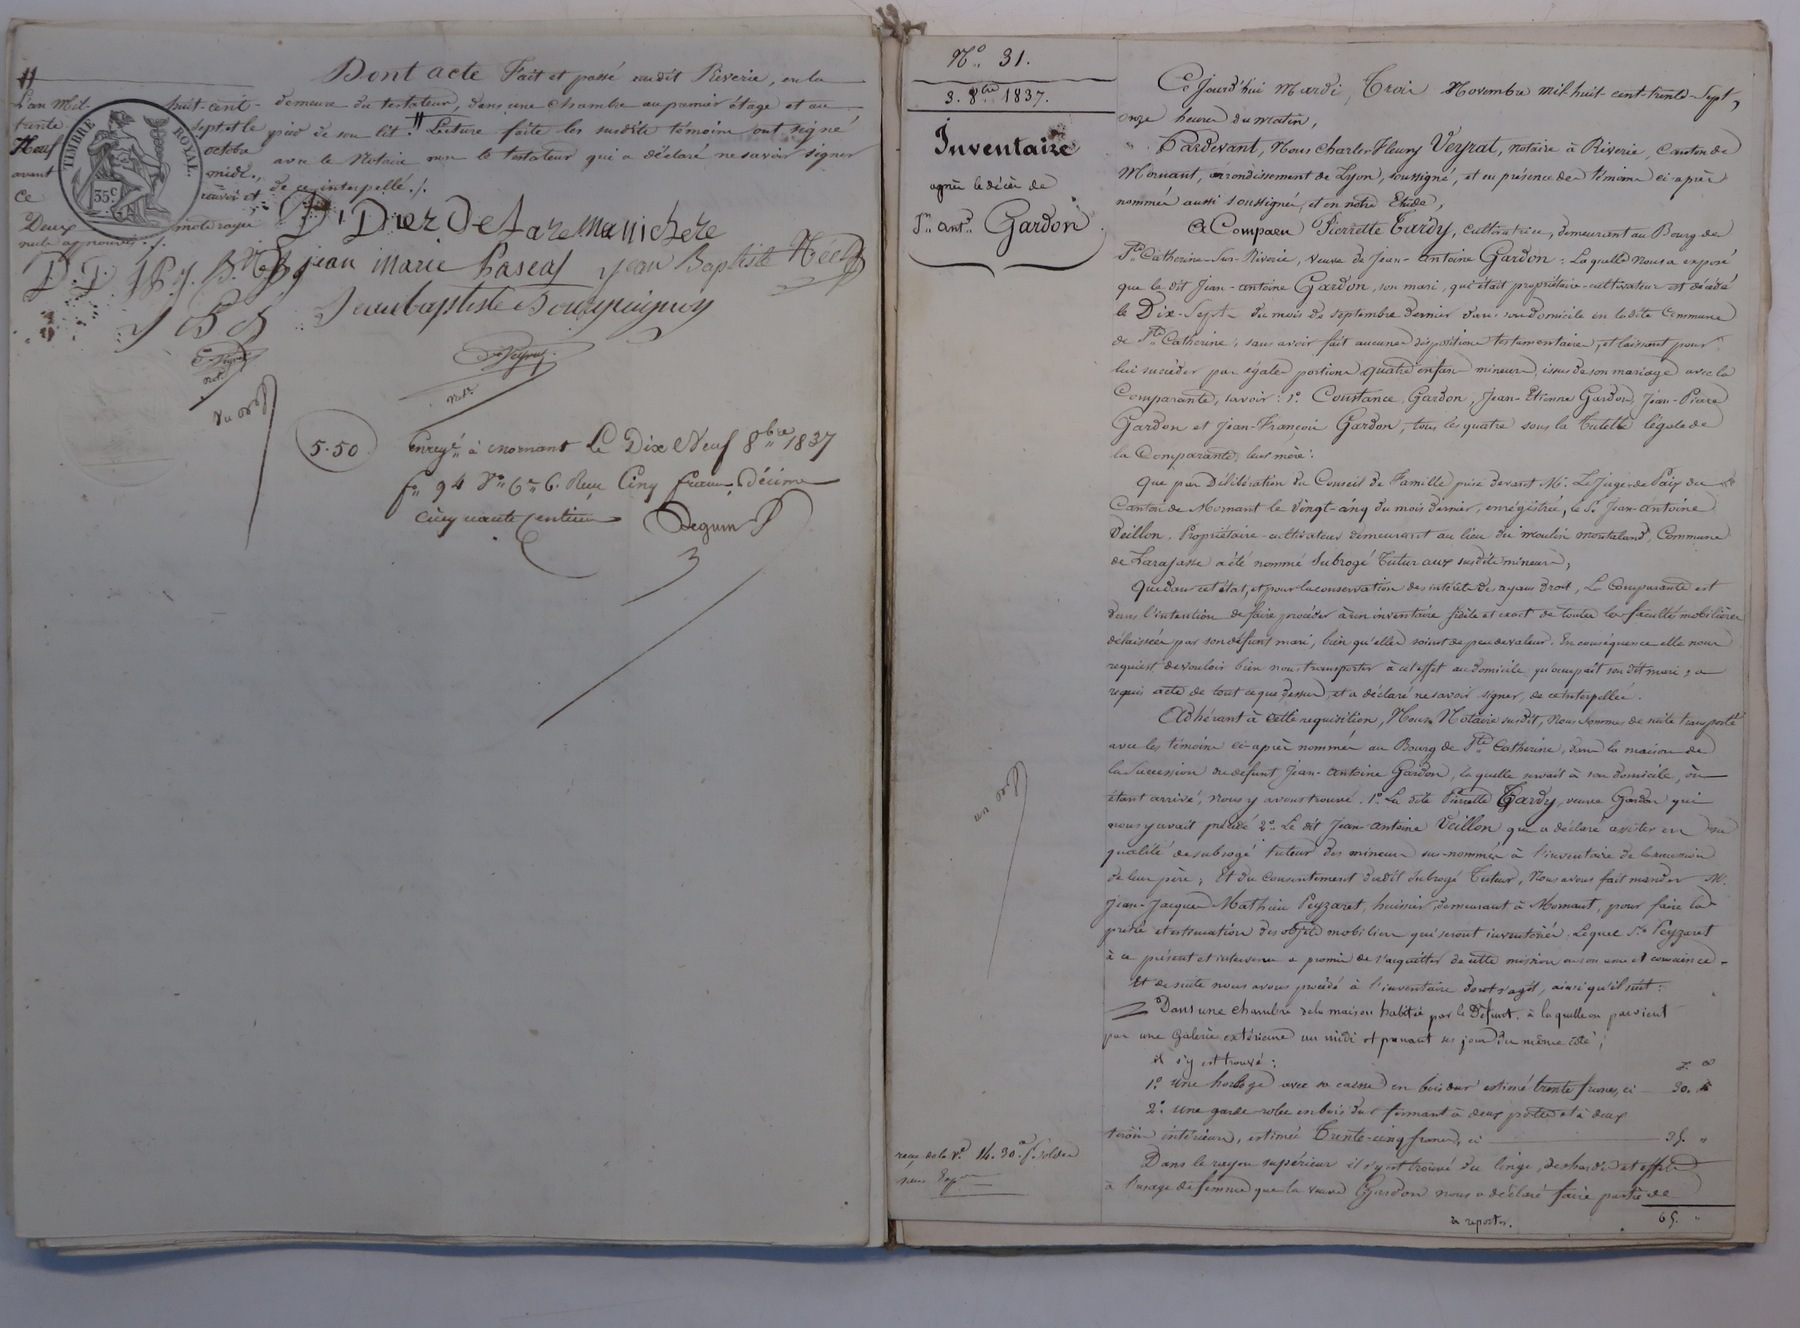 Dont acte Fait et passé audit Riverie, en la
demeure du testateur, dans une chambre au premier étage et au
pied de son lit. # Lecture faite les susdits témoins ont signé
avec le Notaire non le testateur qui a déclaré ne savoir signer
de ce interpellé ./.
#
L'an mil huit-cent-
trente sept et le
Neuf octobre
avant midi.,
ce
Deux mots rayés
nuls approuvés ./.
TIMBRE ROYAL.
35c
jean marie
Jean Baptiste
Jean baptiste Bourguignon
Not.
5.50
Enregé à mornant Le Dix Neuf 8bre 1837
fo 94 Vo Co 6. Reçu Cinq francs, Décime
cinquante centimes
No. 31.
3. 8bre 1837.
Inventaire
après le décès de
Jn Ante Gardon
Ce Jourd'hui Mardi, Trois Novembre mil huit cent trente-Sept,
onze heures du matin,
Pardevant, Nous Charles Fleury Veyrat, notaire à Riverie, Canton de
Mornant, arrondissement de Lyon, soussigné, et en présence des témoins ci-après
nommés aussi soussignés, et en notre Etude,
A Comparu Pierrette Tardy, cultivatrice, demeurant au Bourg de
Ste Catherine-Sur-Riverie, veuve de Jean-antoine Gardon : Laquelle nous a exposé
que le dit Jean-antoine Gardon, son mari, qui était propriétaire-cultivateur est décédé
le Dix-Sept du mois de septembre dernier dans son domicile en la dite Commune
de Ste Catherine, sans avoir fait aucunes dispositions testamentaires, et laissant pour
lui succéder par égales portions quatre enfans mineurs, issus de son mariage avec la
Comparante, savoir : 1o. Constance Gardon, Jean-Etienne Gardon, Jean-Pierre
Gardon et Jean-François Gardon, tous les quatre sous la Tutelle légale de
la Comparante, leur mère :
Que par Délibération du Conseil de Famille prise devant Mr. Le Juge de Paix du
Canton de Mornant le Vingt-cinq du mois dernier, enrégistrée, le Sr. Jean-antoine
Veillon, Propriétaire-cultivateur demeurant au lieu du moulin montaland, Commune
de Larajasse a été nommé Subrogé Tuteur aux susdits mineurs,
Que dans cet état, et pour la conservation des intérêts des ayans droit, La Comparante est
dans l'intention de faire procéder à un inventaire fidèle et exact de toutes les facultés mobilières
délaissées par son défunt mari, bien qu'elles soient de peu de valeur. En conséquence elle nous
requiert de vouloir bien nous transporter à cet effet au domicile qu'occupait son dit mari, a
requis acte de tout ce que dessus, et a déclaré ne savoir signer, de ce interpellée.
Adhérant à cette requisition, Nous Notaire susdit, nous sommes de suite transporté
avec les témoins ci-après nommés au Bourg de Ste Catherine, dans la maison de
la Succession du défunt Jean-antoine Gardon, laquelle servait à son domicile, où
étant arrivé, nous y avons trouvé. 1o. La dite Pierrette Tardy, veuve Gardon qui
nous y avait précédé 2o. Le dit Jean-antoine Veillon qui a déclaré assister en sa
qualité de subrogé tuteur des mineurs sus-nommés à l'inventaire de la succession
de leur père ; Et du Consentement dudit subrogé Tuteur, Nous avons fait mander Mr.
Jean-Jacques Mathieu Peyzaret, huissier, demeurant à Mornant, pour faire la
prisée et estimation des objets mobiliers qui seront inventoriés. Lequel Sr. Peyzaret
à ce présent et intervenu a promis de s'acquitter de cette mission en son ame et conscience -
Et de suite nous avons procédé à l'inventaire dont s'agit, ainsi qu'il suit :
Dans une chambre de la maison habitée par le Défunt, à laquelle on parvient
par une Galerie extérieure au midi et prenant ses jours du même côté,
il s'y est trouvé :
1o. une horloge avec sa caisse en bois dur estimé trente francs, ci 30.
2o. une garde-robe en bois dur fermant à deux portes et à deux
tiroirs intérieurs, estimée Trente-cinq francs, ci 35. "
Dans le rayon supérieur il s'y est trouvé du linge, des hardes et effets
à l'usage de femme que la veuve Gardon nous a déclaré faire partie de
à reporter. 65. "